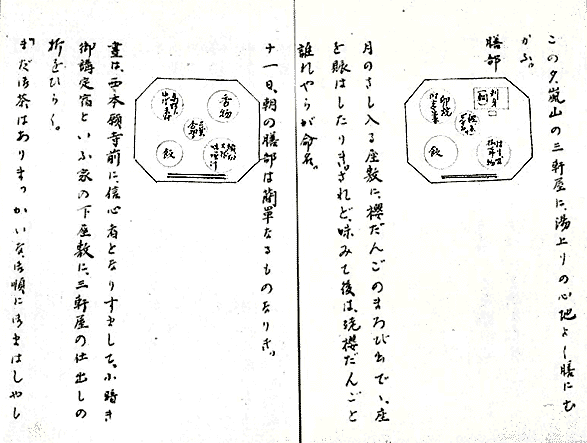 この夕嵐山の三軒屋に、湯上りの心地よく膳にむ
かふ。
膳部
刺身
卵焼
飯
月のさし入る座敷に、櫻だんごのまろび出でゝ、座
を賑はしたりき。されど、味みて後は、洗櫻だんごと
誰れやらが命名。
十一日、朝の膳部は簡單なるものなりき。
香物
飯
晝は、西本願寺前に、信心者となりすまして、小晴き
御講定宿といふ家の下座敷に、三軒屋の仕出しの
折をひらく。
まだお茶はありまつかいな、お順にお